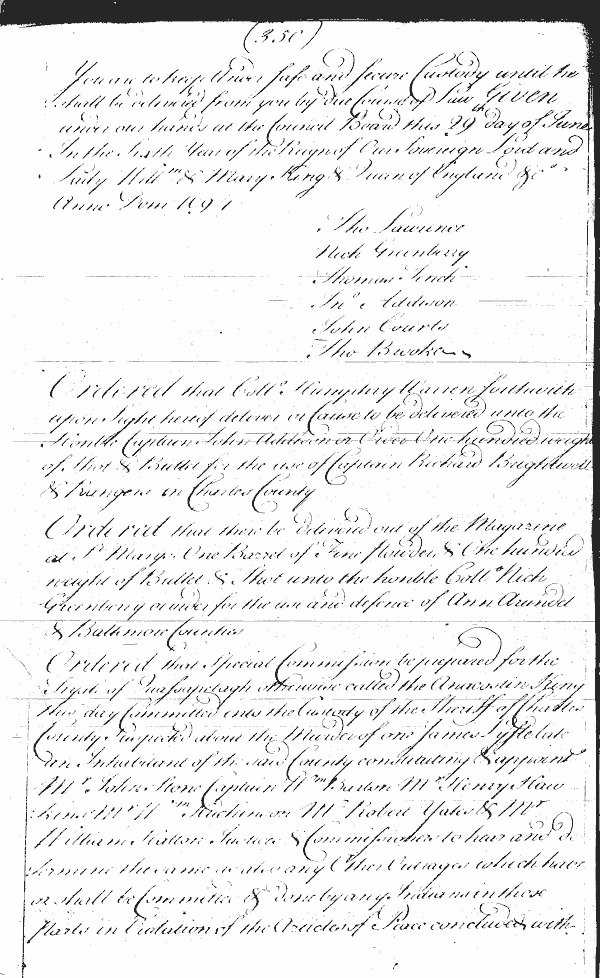 (350)
You are to keep under safe and secure Custody until he
shall be delivered from you by due Course of Law Given
under our hands at the Council Board this 29th day of June
In the Sixth Year of the Reign of Our Sovereign Lord and
Lady Willm & Mary King & Quan of England &ca
Anno Dom 1694
Tho Lawrence
Nich Greenberry
Thomas Tench
Jno Addison
John Courts
Tho Brooke
Ordered that Collo Humphry Warren forthwith
upon Sight hereof deliver or Cause to be delivered unto the
Honble Captain John Addison or Order One hundred weight
of Shot & Bullet for the use of Captain Richard Brightwell
& Rangers in Charles County
Ordered that there be delivered out of the Magazine
at St Marys One Barrel of Fine Powder & One hundred
weight of Bullet & Shot unto the honble Collo Nich
Greenberry or order for the use and defence of Ann Arundel
& Baltimore Counties
Ordered that Special Commission be prepared for the
Tryal of otherwise called the King
this day Committed into the Custody of the Sheriff of Charles
County Suspected about the Murder of one James late
an Inhabitant of the said County constituting & appoint
Mr John Stone Captain Wm Barton Mr Henry Haw
kins Mr Wm Hutchinson Mr Robert Yates & Mr
William Hatton Justice & Commissioners to hear and de
termine the same as also any Other Outrages which have
or shall be Committed & done by any Indians in those
Parts in Violation of the Articles of Peace concluded with